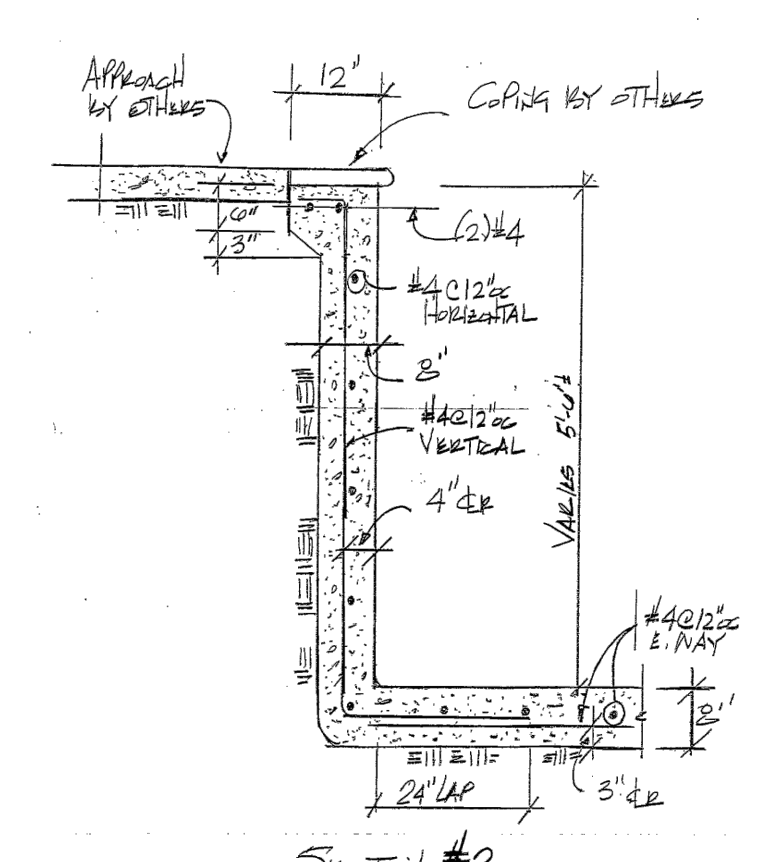 APPROACH
BY OTHERS
12"
COPING BY OTHERS
6"
3"
(2)#4
#4@12"oc
HORIZONTAL
8"
#4@12"oc
VERTICAL
4" CLR
VARIES 5'-6"±
#4@12"oc
E. WAY
8"
24" LAP
3" CLR
#2